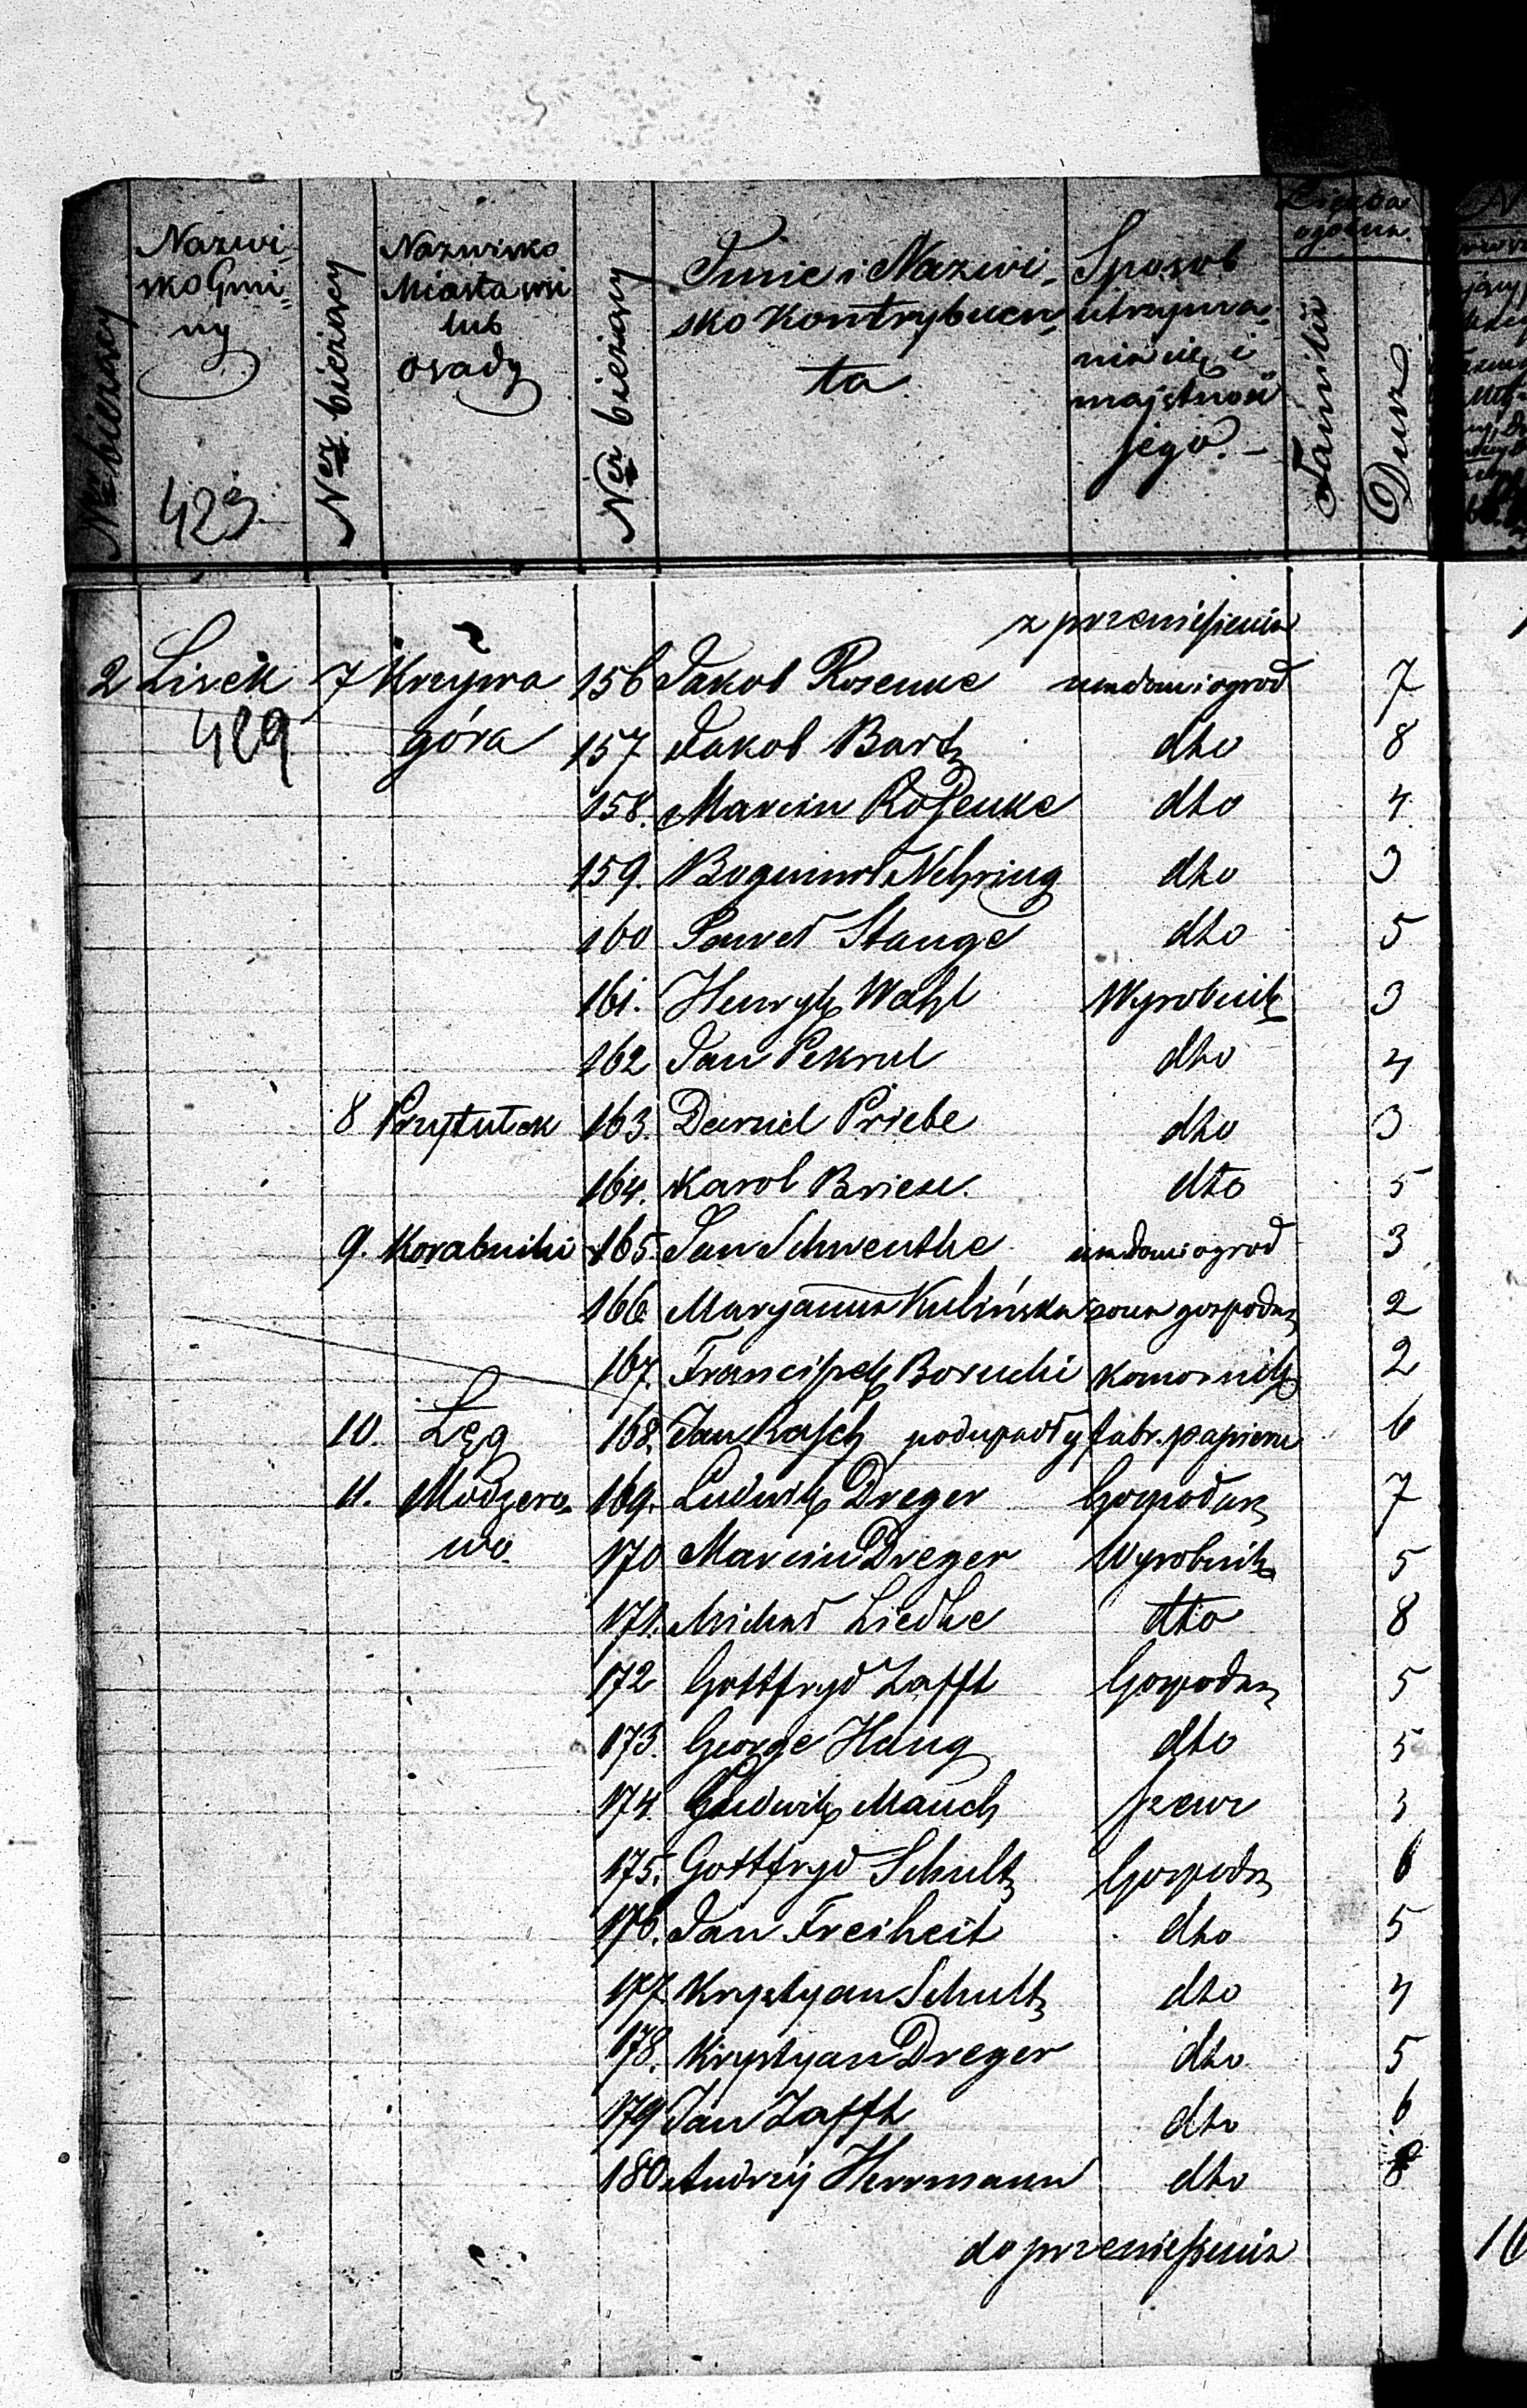 Ner bieżący
Nazwi-
sko Gmi-
ny
423
Ner. bieżący
Nazwisko
Miasta wsi
lub
osady
Ner bieżący
Imie i Nazwi-
sko Kontrybuen-
ta
Sposób
utrzyma-
nia się i
majętność
jego. -
Liczba
ogólna.
Familiów
Dusz
z przeniesienia
2 Lisek 7 Krzywa 156 Jakob Rosenke ma dom i ogrod 7
429 góra 157 Jakob Bartz dto 8
158. Marcin Roßenke dto 4
159. Bogumił Nehring dto 3
160 Paweł Stange dto 5
161. Henryk Wahl Wyrobnik 3
162 Jan Pekrul dto 4
8 Przytułek 163. Daniel Priebe dto 3
164. Karol Briese. dto 5
9. Korabniki 165. Jan Schwenthe ma dom i ogrod 3
166 Maryanna Kulińska żona gospodarz 2
167. Franciszek Borucki Komornik 2
10. Łęg 168. Jan Rasch podupadły fabr. papieru 6
11. Modzero- 169. Ludwik Dreger Gospodarz 7
wo. 170 Marcin Dreger Wyrobnik 5
171. Michał Liedke dto 8
172 Gottfryd Zafft Gospodarz 5
173. George Haug dto 5
174. Ludwik Mauch szewc 3
175. Gottfryd Schultz Gospodarz 6
176. Jan Freiheit dto 5
177 Krystyan Schultz dto 4
178. Krystyan Dreger dto 5
179 Jan Zafft dto 6
180. Andrzej Herrmann dto 8
do przeniesienia